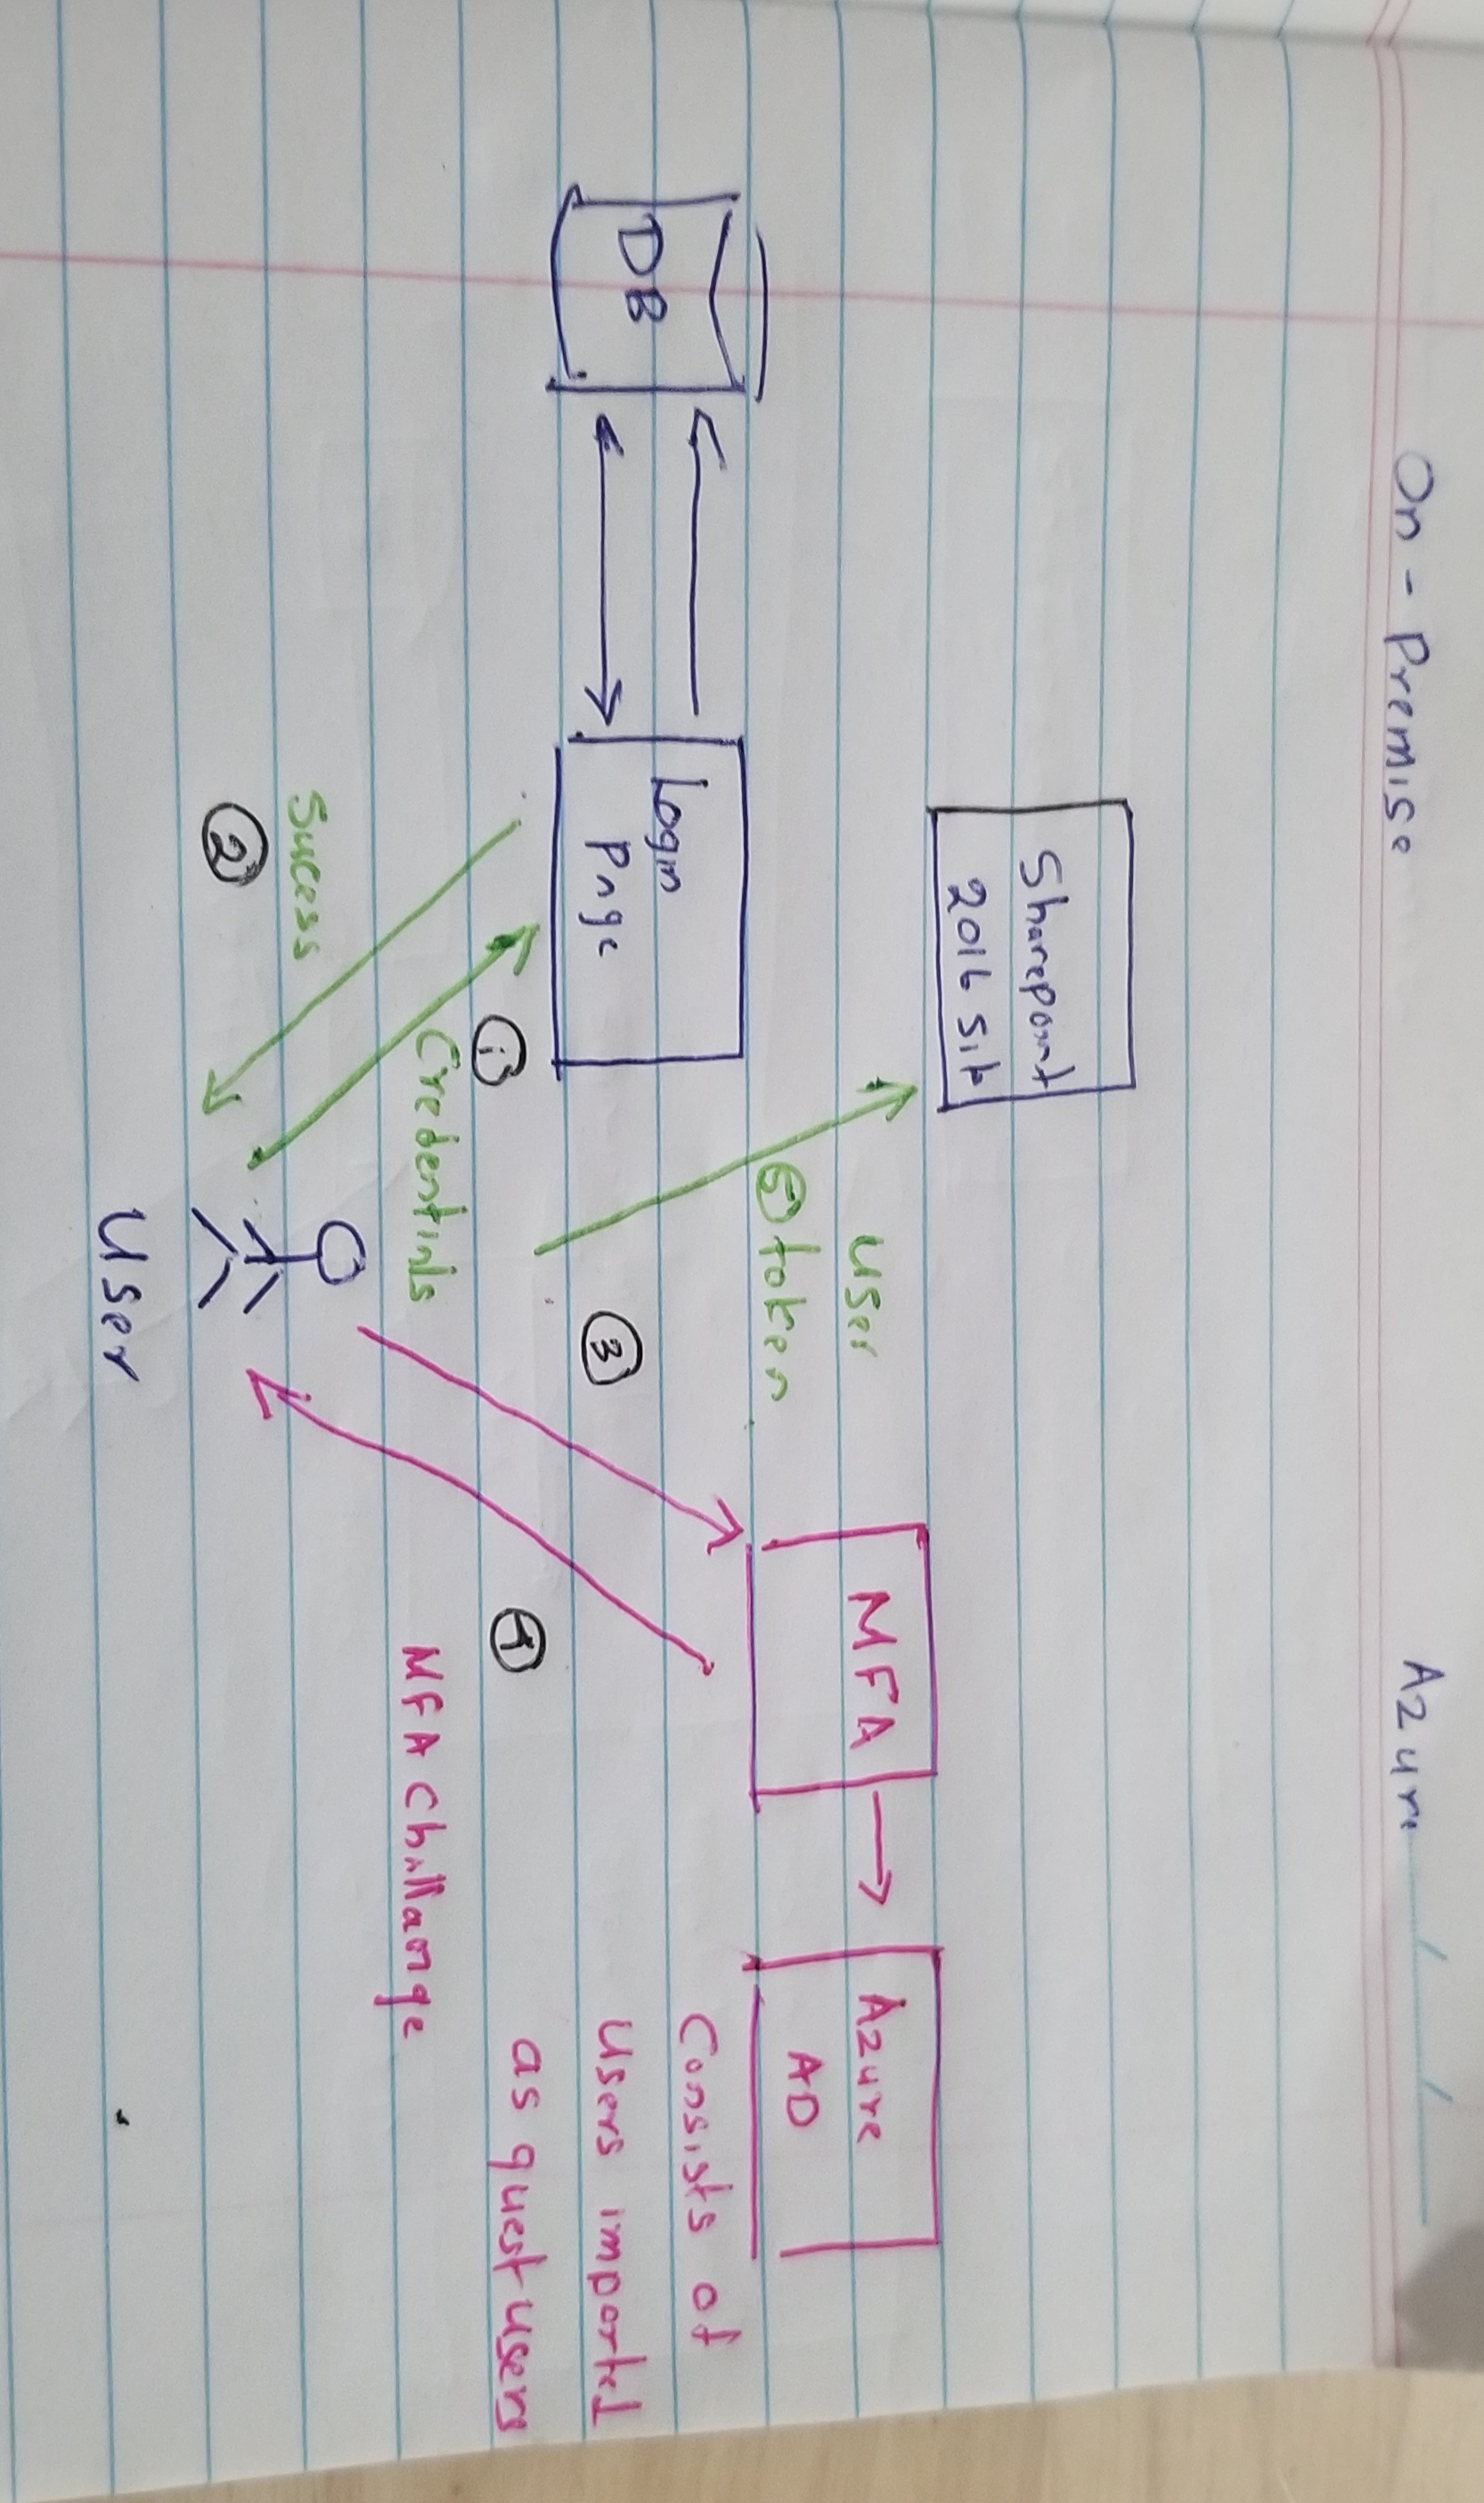 On - Premise
Azure
Sharepoint
2016 site
DB
Login
Page
MFA
Azure
AD
User
⑤ token
③
①
Credentials
Sucess
②
④
MFA Challange
Consists of
Users imported
as guest users
User